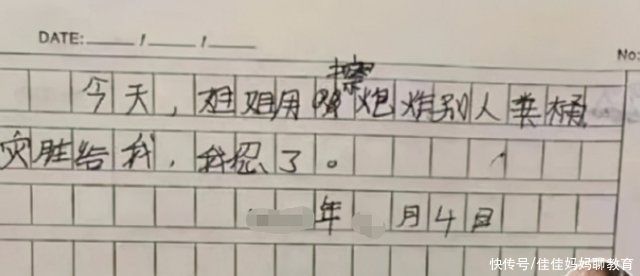 DATE: / /
No:
今天，姐姐用擦炮炸别人粪桶
灾胜给我，我忍了。
年 月4日
快传号/佳佳妈妈聊教育